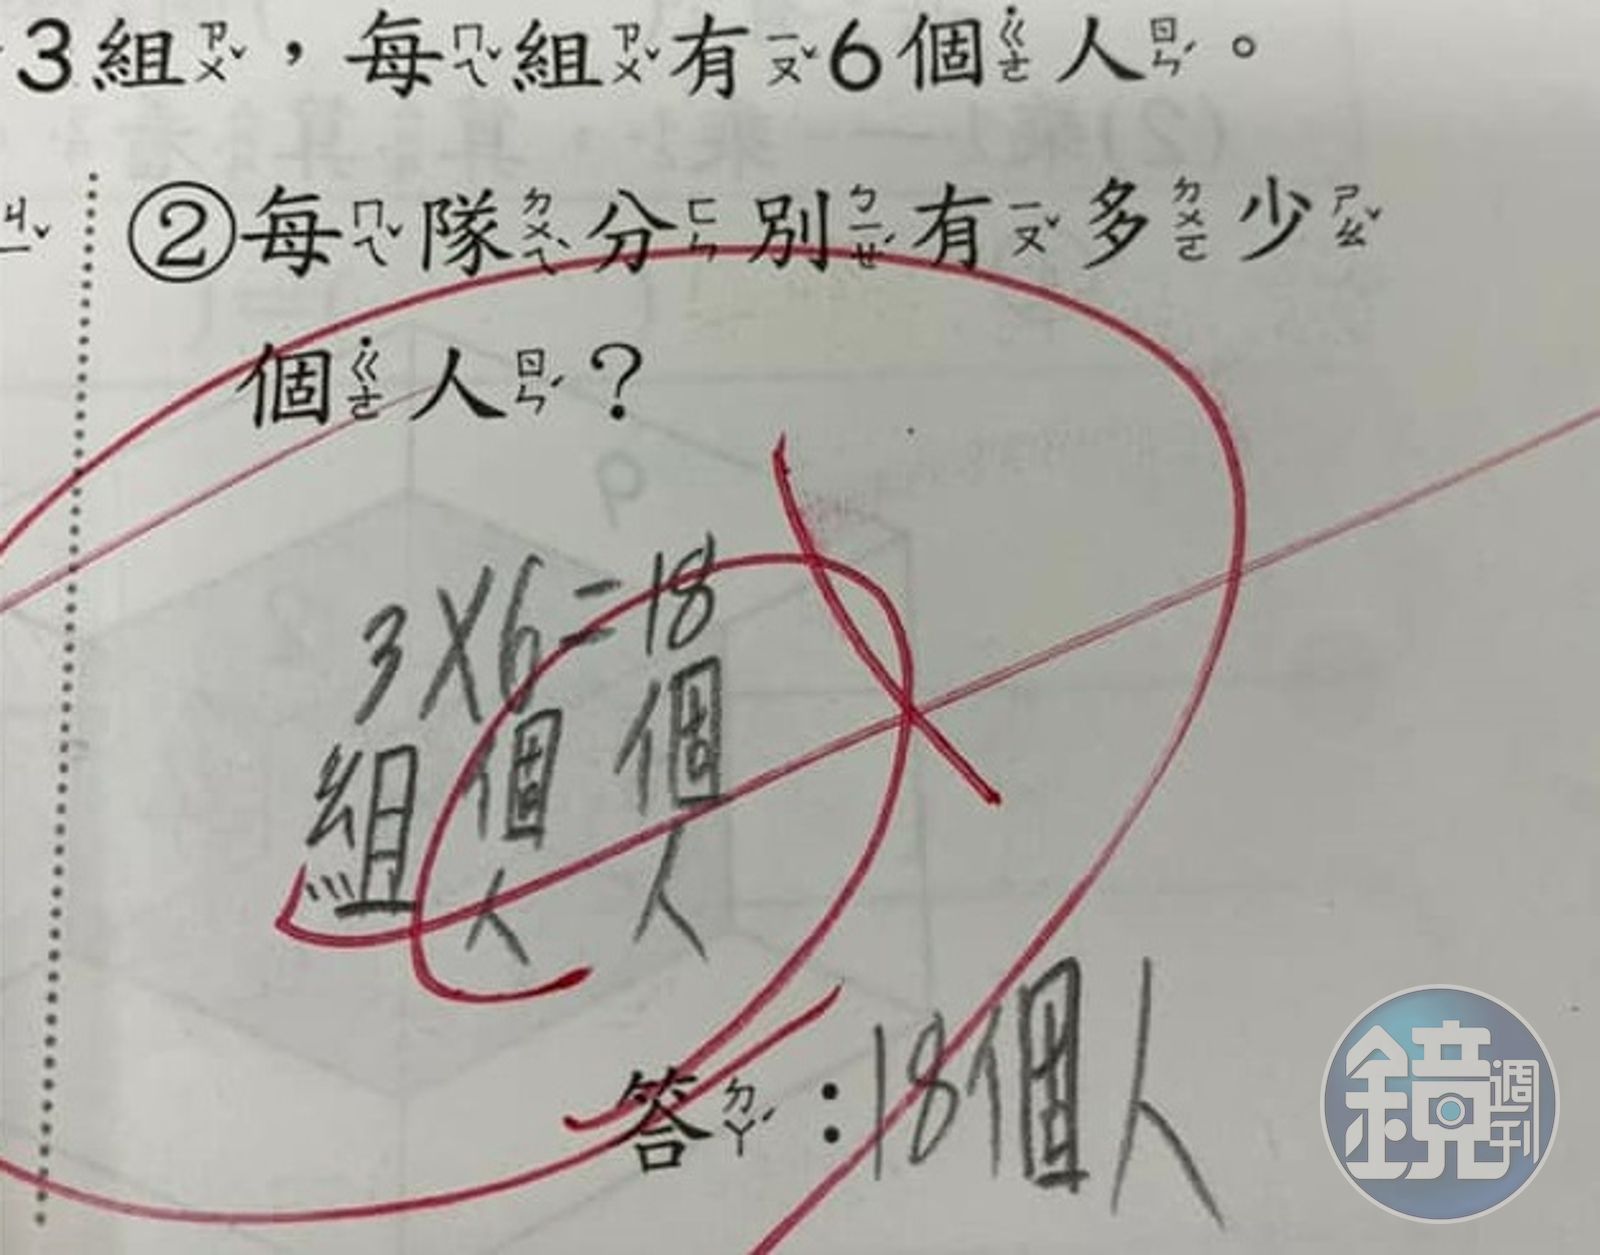 3組ㄗㄨˇ，每ㄇㄟˇ組ㄗㄨˇ有ㄧㄡˇ6個ㄍㄜ˙人ㄖㄣˊ。
②每ㄇㄟˇ隊ㄉㄨㄟˋ分ㄈㄣ別ㄅㄧㄝˊ有ㄧㄡˇ多ㄉㄨㄛ少ㄕㄠˇ
個ㄍㄜ˙人ㄖㄣˊ？
3×6=18
組 個人 個人
答ㄉㄚˊ：18個人
鏡週刊